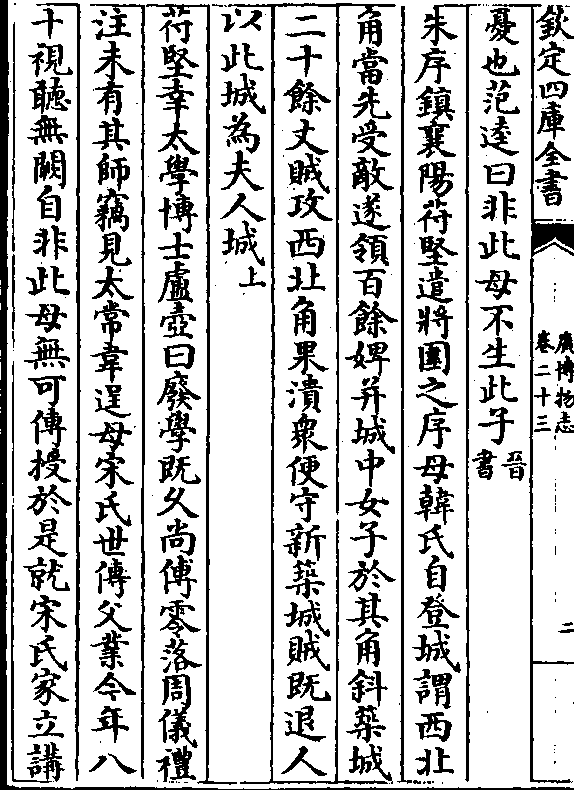 欽定四庫全書
廣博物志
卷二十三
二
憂也范逵曰非此母不生此子晉書
朱序鎮襄陽苻堅遣將圍之序母韓氏自登城謂西北
角當先受敵遂領百餘婢并城中女子於其角斜築城
二十餘丈賊攻西北角果潰衆便守新築城賊既退人
以此城為夫人城上
苻堅幸太學博士盧壺曰廢學既久尚傳零落周儀禮
注未有其師竊見太常韋逞母宋氏世傳父業今年八
十視聽無闕自非此母無可傳授於是就宋氏家立講